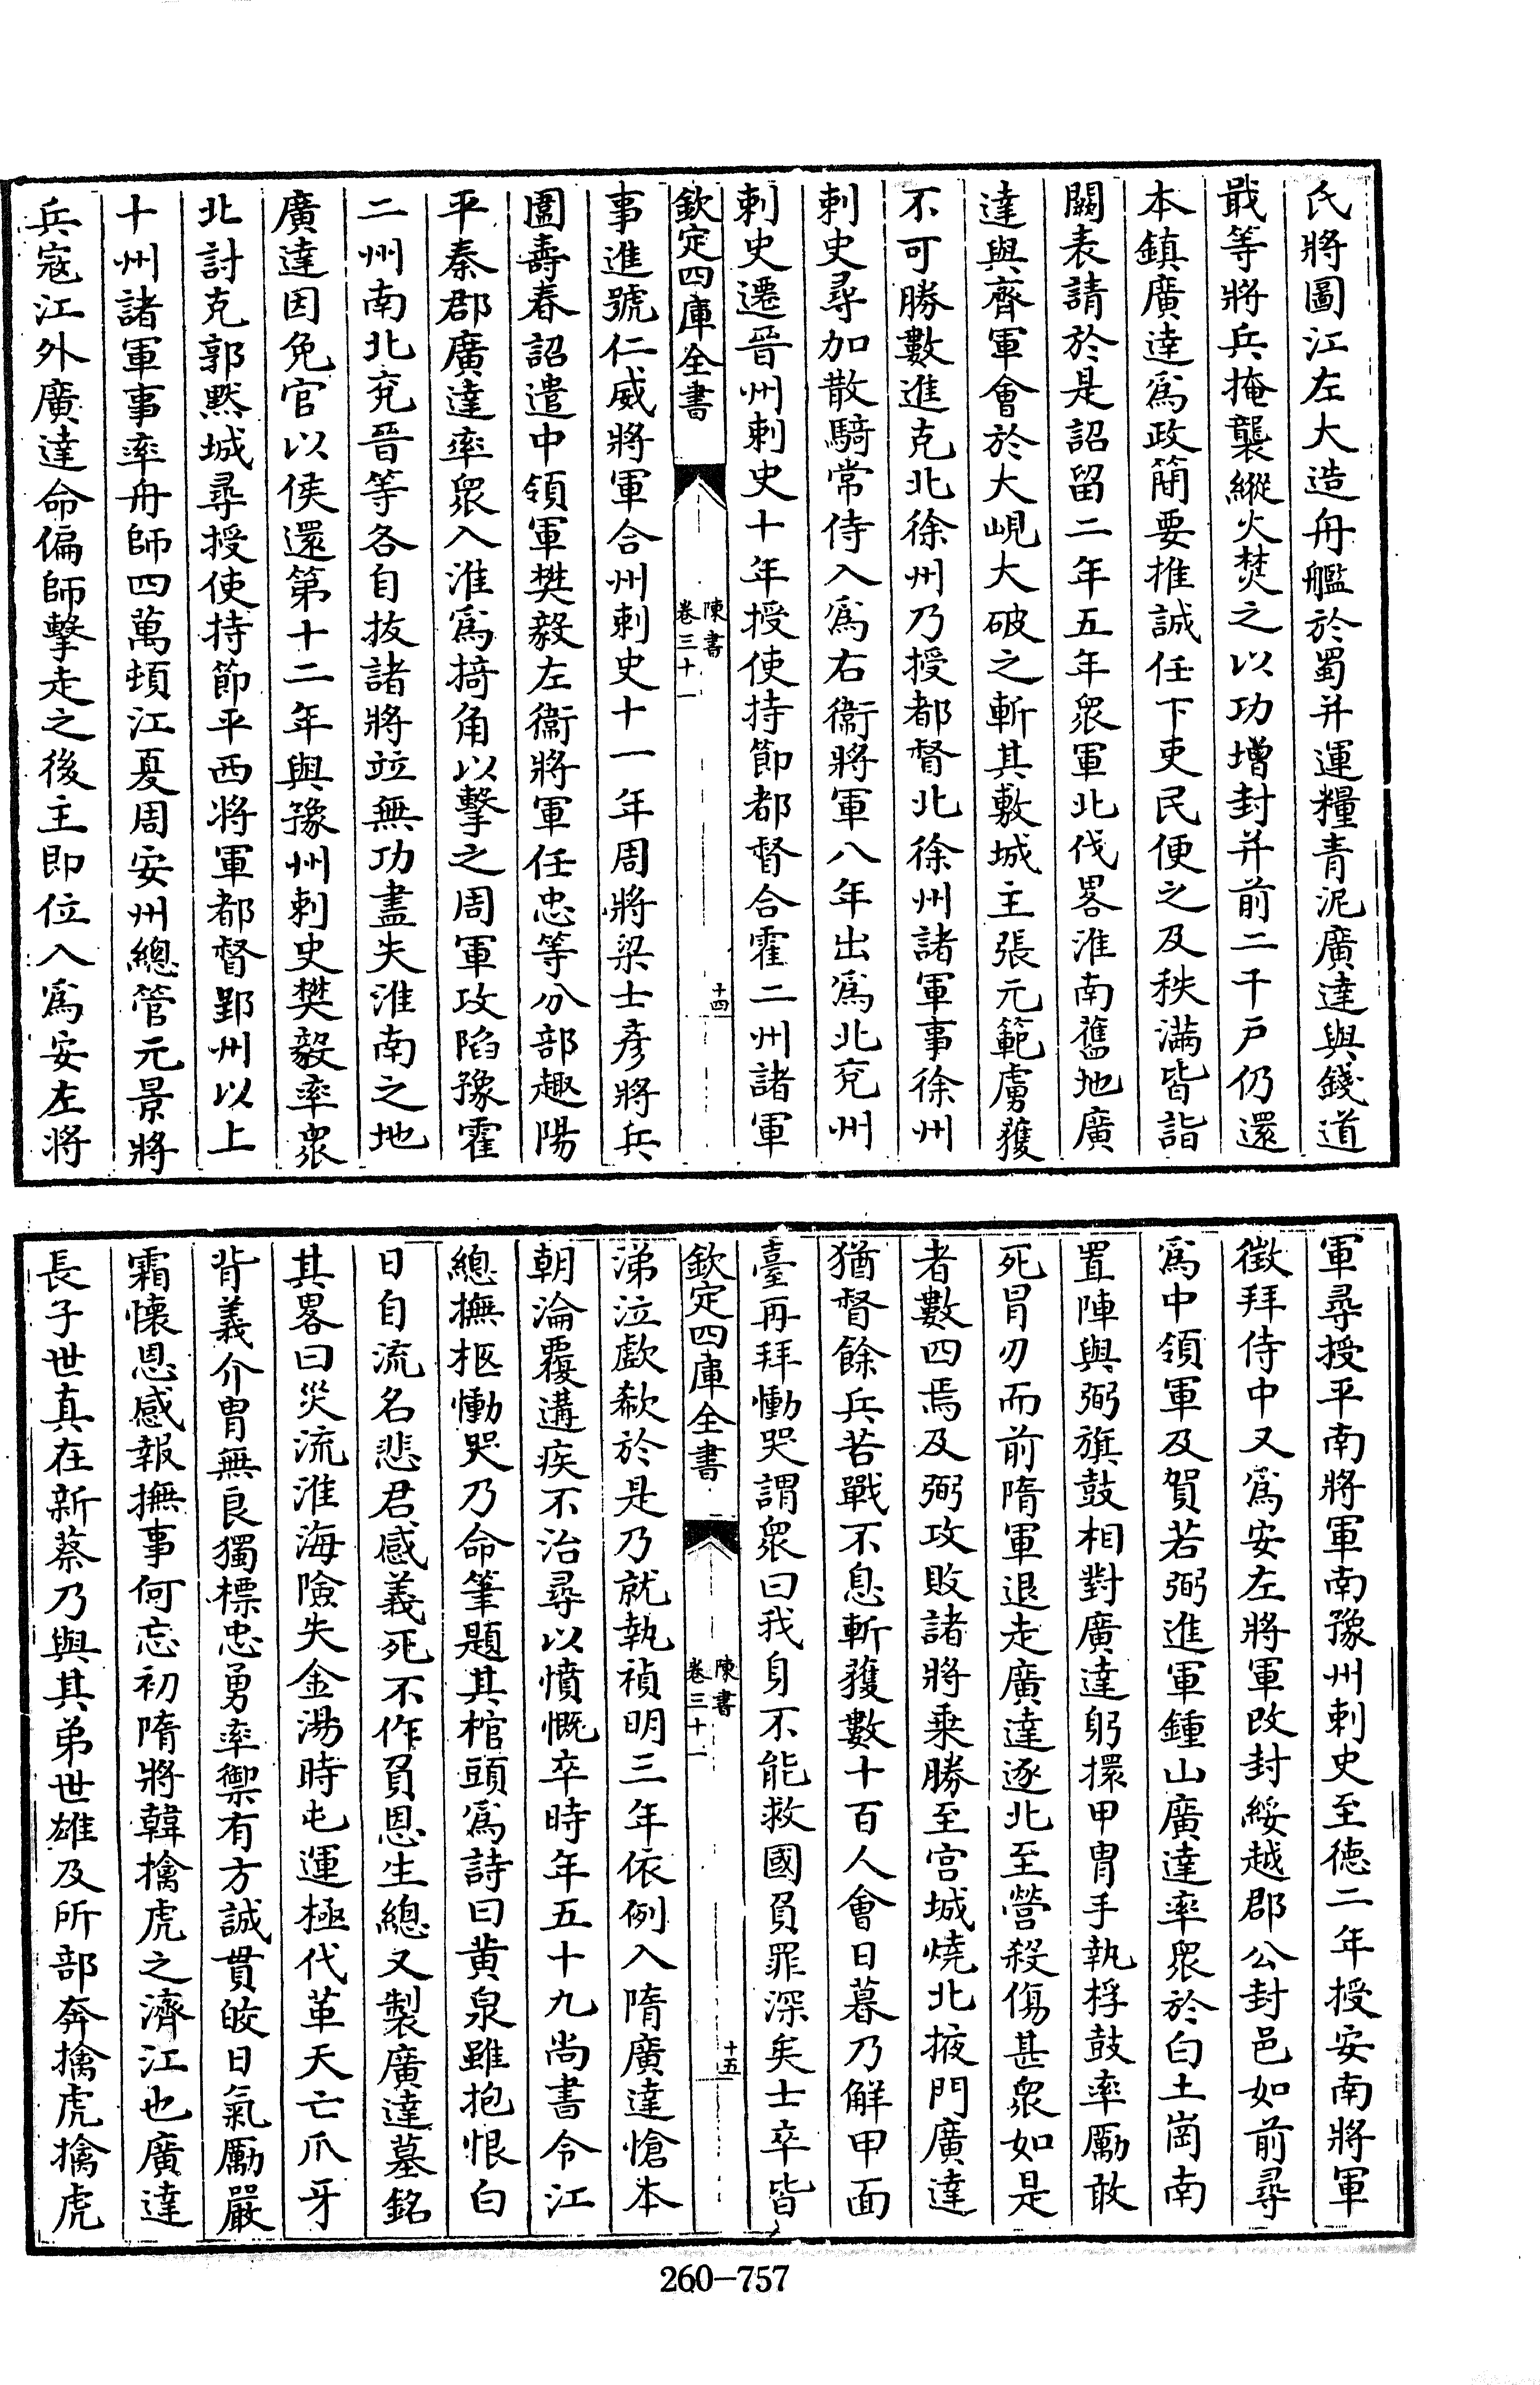 氏將圖江左大造舟艦於蜀并運糧青泥廣達與錢道
戢等將兵掩襲縱火焚之以功增封并前二千戶仍還
本鎮廣達爲政簡要推誠任下吏民便之及秩滿皆詣
闕表請於是詔留二年五年衆軍北伐畧淮南舊地廣
達與齊軍會於大峴大破之斬其敷城主張元範虜獲
不可勝數進克北徐州乃授都督北徐州諸軍事徐州
刺史尋加散騎常侍入爲右衞將軍八年出爲北兖州
刺史遷晉州刺史十年授使持節都督合霍二州諸軍
欽定四庫全書
陳書
卷三十一
十四
事進號仁威將軍合州刺史十一年周將梁士彥將兵
圍壽春詔遣中領軍樊毅左衞將軍任忠等分部趣陽
平秦郡廣達率衆入淮爲掎角以擊之周軍攻陷豫霍
二州南北兖晉等各自拔諸將竝無功盡失淮南之地
廣達因免官以侯還第十二年與豫州刺史樊毅率衆
北討克郭黙城尋授使持節平西將軍都督郢州以上
十州諸軍事率舟師四萬頓江夏周安州總管元景將
兵寇江外廣達命偏師擊走之後主即位入爲安左將
軍尋授平南將軍南豫州刺史至德二年授安南將軍
徵拜侍中又爲安左將軍改封綏越郡公封邑如前尋
爲中領軍及賀若弼進軍鍾山廣達率衆於白土崗南
置陣與弼旗鼓相對廣達躬擐甲胄手執桴鼓率勵敢
死冒刃而前隋軍退走廣達逐北至營殺傷甚衆如是
者數四焉及弼攻敗諸將乘勝至宫城燒北掖門廣達
猶督餘兵苦戰不息斬獲數十百人會日暮乃解甲面
臺再拜慟哭謂衆曰我身不能救國負罪深矣士卒皆
欽定四庫全書
陳書
卷三十一
十五
涕泣歔欷於是乃就執禎明三年依例入隋廣達愴本
朝淪覆遘疾不治尋以憤慨卒時年五十九尚書令江
總撫柩慟哭乃命筆題其棺頭爲詩曰黄泉雖抱恨白
日自流名悲君感義死不作負恩生總又製廣達墓銘
其畧曰災流淮海險失金湯時屯運極代革天亡爪牙
背義介胄無良獨標忠勇率禦有方誠貫皎日氣勵嚴
霜懷恩感報撫事何忘初隋將韓擒虎之濟江也廣達
長子世真在新蔡乃與其弟世雄及所部奔擒虎擒虎
260-757